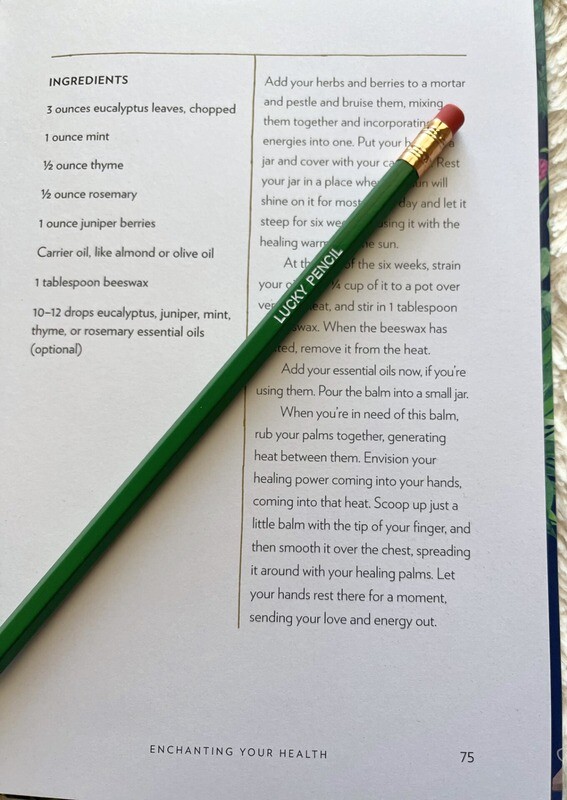 INGREDIENTS
3 ounces eucalyptus leaves, chopped
1 ounce mint
½ ounce thyme
½ ounce rosemary
1 ounce juniper berries
Carrier oil, like almond or olive oil
1 tablespoon beeswax
10–12 drops eucalyptus, juniper, mint,
thyme, or rosemary essential oils
(optional)
Add your herbs and berries to a mortar
and pestle and bruise them, mixing
them together and incorporating
energies into one. Put your a
jar and cover with your Rest
your jar in a place will
shine on it for most day and let it
steep for six using it with the
healing sun.
At of the six weeks, strain
your cup of it to a pot over
and stir in 1 tablespoon
When the beeswax has
remove it from the heat.
Add your essential oils now, if you're
using them. Pour the balm into a small jar.
When you're in need of this balm,
rub your palms together, generating
heat between them. Envision your
healing power coming into your hands,
coming into that heat. Scoop up just a
little balm with the tip of your finger, and
then smooth it over the chest, spreading
it around with your healing palms. Let
your hands rest there for a moment,
sending your love and energy out.
LUCKY PENCIL
ENCHANTING YOUR HEALTH
75